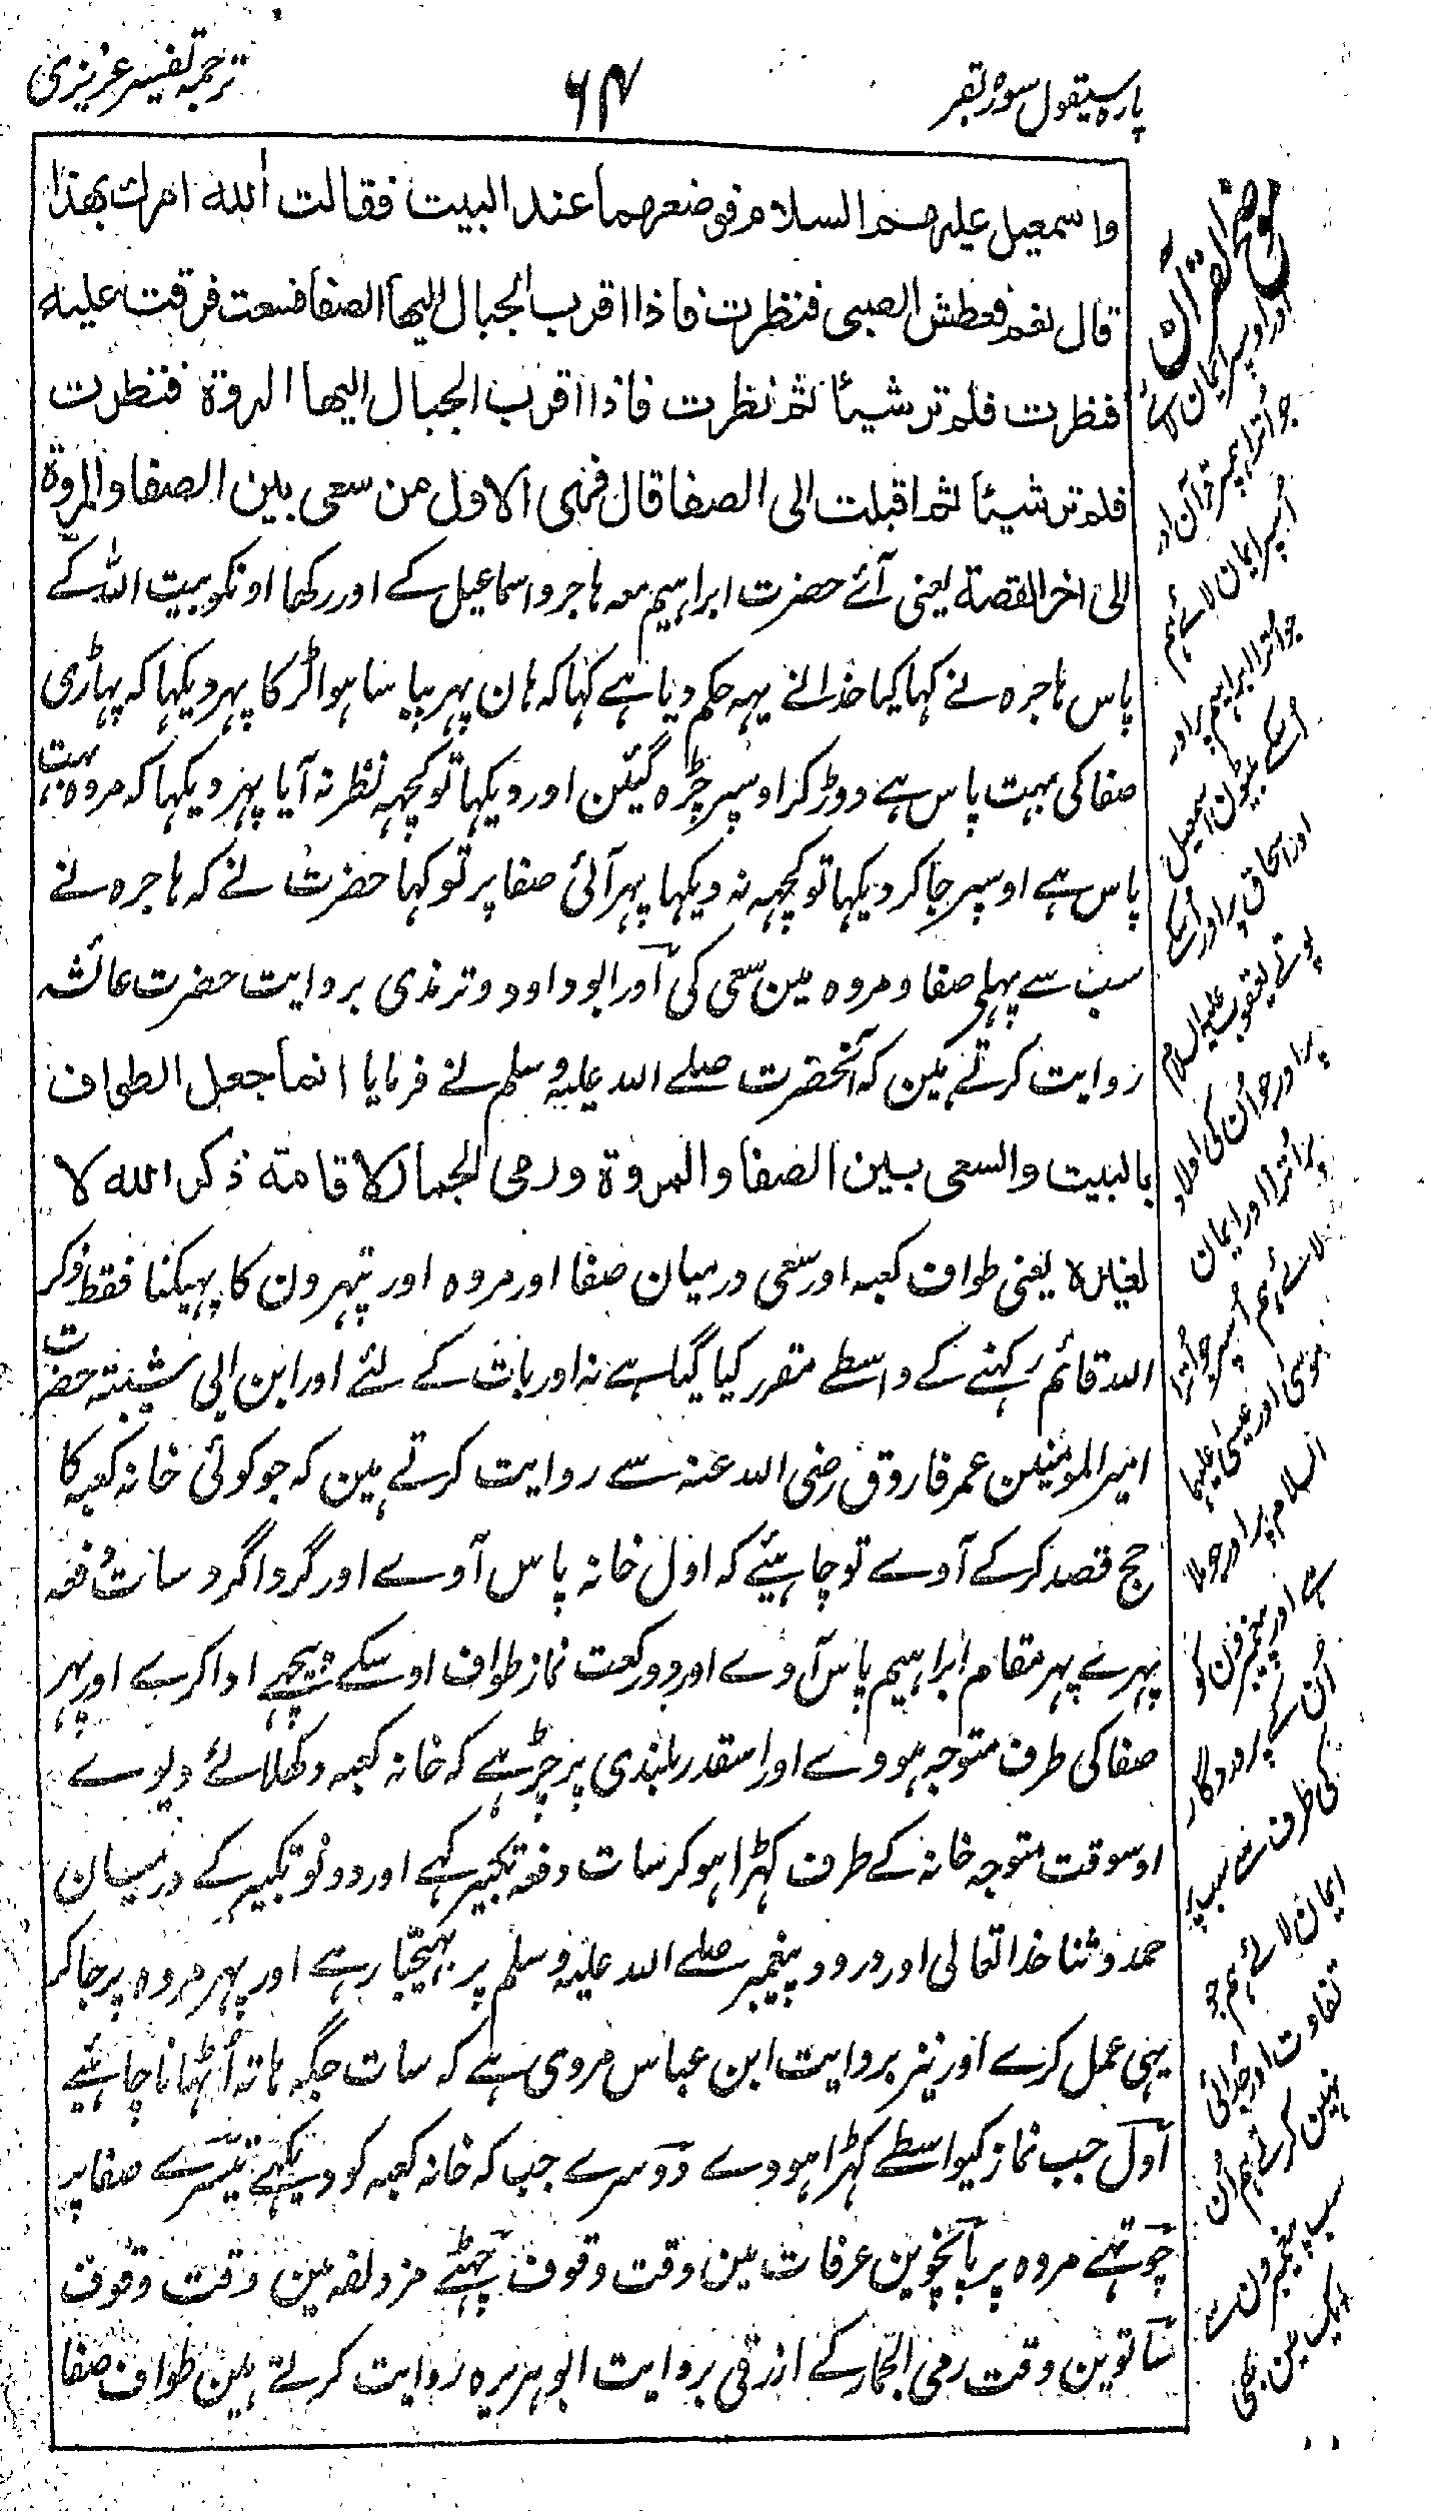 پارہ سیقول سورۂ بقر
۶۴
ترجمہ تفسیر عزیزی
واسمعیل علیہم السلام فوضعہما عند البیت فقالت اٰللہ امرک بھذا
قال نعم فعطش الصبی فنظرت فاذا اقرب الجبال الیھا الصفا فسعت فرقت علیہ
فنظرت فلم تر شیئا ثم نظرت فاذا اقرب الجبال الیھا المروۃ فنظرت
فلم تر شیئا ثم اقبلت الی الصفا قال فھی الاول من سعی بین الصفا والمروۃ
الی اخر القصۃ یعنی آئے حضرت ابراہیم معہ ہاجر و اسماعیل کے اور رکھا اونکو بیت اللہ کے
پاس ہاجرہ نے کہا کیا خدا نے یہہ حکم دیا ہے کہا کہ ہان پہر پیاسا ہوا لڑکا پہر دیکہا کہ پہاڑی
صفا کی بہت پاس ہے دوڑ کر اوسپر چڑہ گئین اور دیکہا تو کچہہ نظر نہ آیا پہر دیکہا کہ مروہ بہت
پاس ہے اوسپر جا کر دیکہا تو کچہہ نہ دیکہا پہر آئی صفا پر تو کہا حضرت نے کہ ہاجرہ نے
سب سے پہلے صفا و مروہ مین سعی کی اور ابو داود و ترمذی بروایت حضرت عائشہ
روایت کرتے ہین کہ آنحضرت صلے اللہ علیہ وسلم نے فرمایا انما جعل الطواف
بالبیت والسعی بین الصفا والمروۃ ورمی الجمار لاقامۃ ذکر اللہ لا
لغیرہ یعنی طواف کعبہ اور سعی درمیان صفا اور مروہ اور تپہرون کا پہیکنا فقط ذکر
اللہ قائم رکہنے کے واسطے مقرر کیا گیا ہے نہ اور بات کے لئے اور ابن ابی شیبتہ حضرت
امیر المومنین عمر فاروق رضی اللہ عنہ سے روایت کرتے ہین کہ جو کوئی خانہ کعبہ کا
حج قصد کرکے آوے تو چاہیئے کہ اول خانہ پاس آوے اور گرداگرد سات دفعہ
پہرے پہر مقام ابراہیم پاس آوے اور دو رکعت نماز طواف اوسکے پیچہے ادا کرے اور پہر
صفا کی طرف متوجہ ہووے اور اسقدر بلندی پر چڑہے کہ خانہ کعبہ دکھلائے دیوے
اوسوقت متوجہ خانہ کے طرف کہڑا ہو کر سات دفعہ تکبیر کہے اور دونو تکبیر کے درمیان
حمد و ثنا خدا تعالی اور درود پیغمبر صلے اللہ علیہ وسلم پر بہیجتا رہے اور پہر مروہ پر جا کر
یہی عمل کرے اور نیز بروایت ابن عباس مروی ہے کہ سات جگہ ہاتہ اُٹہانا چاہئیے
اول جب نماز کیواسطے کہڑا ہووے دوسرے جب کہ خانہ کعبہ کو دیکہے تیسرے صفا پر
چوتہے مروہ پر پانچوین عرفات مین وقت وقوف چہٹے مزدلفہ مین وقت وقوف
ساتوین وقت رمی الجمار کے ازرقی بروایت ابو ہریرہ روایت کرتے ہین طواف صفا
موضح القرآن
اور اوسپر ایمان لائے
جو اُترا ہمپر قرآن اور
اُسپر ایمان لائے ہم
جو اُترا ابراہیم پر اور
اُسکے بیٹون اسمعیل
اور اسحاق پر اور اُسکے
پوتے یعقوب علیہ السلام
پر اور جو اُن کی اولاد
پر اُترا اور ایمان
لائے ہم اُسپر جو اُترا
موسیٰ اور عیسیٰ علیہما
السلام پر اور جو ملا
ہے اور پیغمبرون کو
اُن کے پروردگار
کی طرف سے سب پر
ایمان لائے ہم جو
تفاوت اور جدائی
نہین کرتے ہم اُن
سب پیغمبرون سے
ایک مین بھی